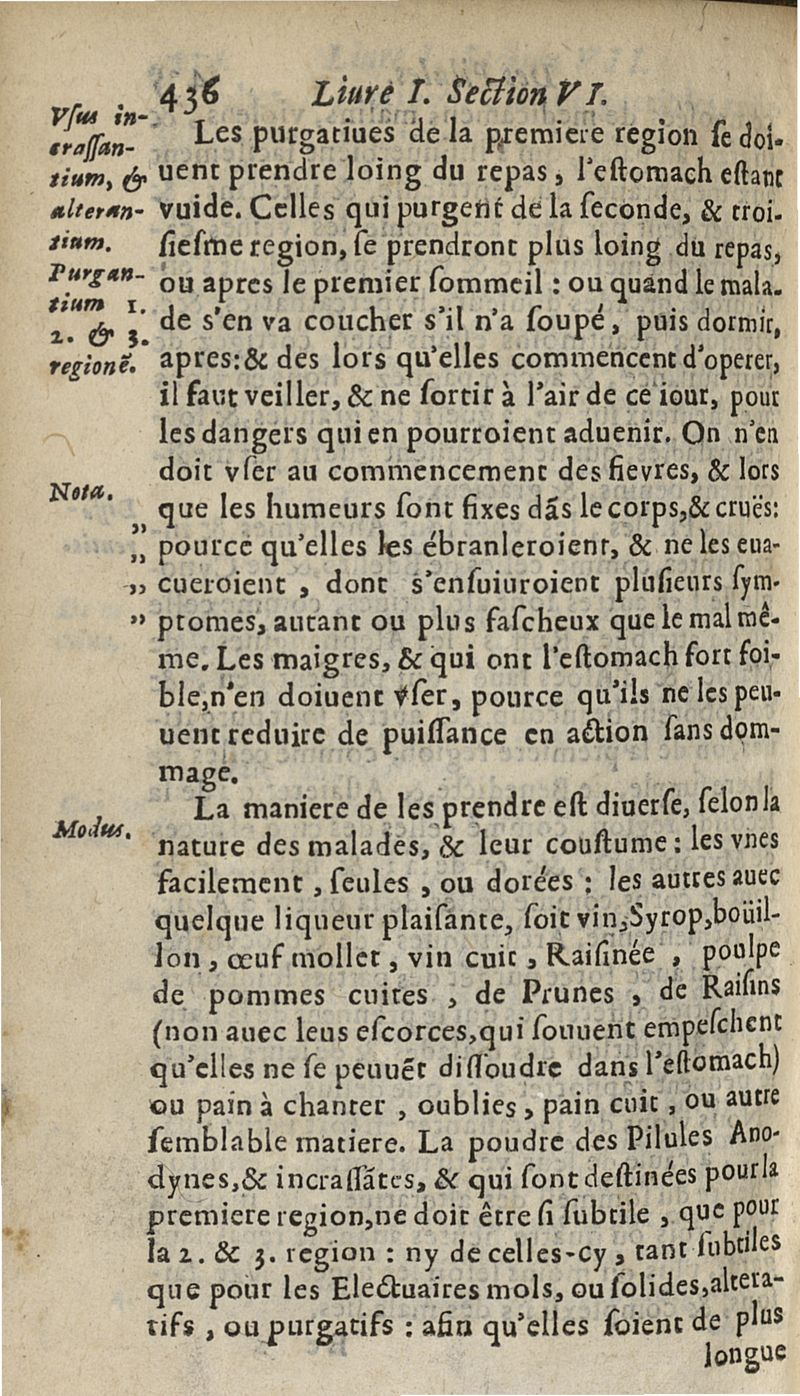 436 Liure I. Section VI.
Vſus in-
craſſan-
tium, &
alteran-
tium.
Purgan-
tium 1.
2. & 3.
regionẽ.
Les purgatiues de la premiere region ſe doi-
uent prendre loing du repas, l'eſtomach eſtant
vuide. Celles qui purgent de la ſeconde, & troi-
ſieſme region, ſe prendront plus loing du repas,
ou apres le premier ſommeil : ou quand le mala-
de s'en va coucher s'il n'a ſoupé, puis dormir,
apres:& des lors qu'elles commencent d'operer,
il faut veiller, & ne ſortir à l'air de ce iour, pour
les dangers qui en pourroient aduenir. On n'en
doit vſer au commencement des fievres, & lors
Nota.
que les humeurs ſont fixes dãs le corps,& cruës:
„ pource qu'elles les ébranleroient, & ne les eua-
„ cueroient , dont s'enſuiuroient pluſieurs ſym-
„ ptomes, autant ou plus faſcheux que le mal mê-
me. Les maigres, & qui ont l'eſtomach fort foi-
ble,n'en doiuent vſer, pource qu'ils ne les peu-
uent reduire de puiſſance en action ſans dom-
mage.
Modus.
La maniere de les prendre eſt diuerſe, ſelon la
nature des malades, & leur couſtume : les vnes
facilement , ſeules , ou dorées : les autres auec
quelque liqueur plaiſante, ſoit vin,Syrop,boüil-
lon , œuf mollet , vin cuit , Raiſinée , poulpe
de pommes cuites , de Prunes , de Raiſins
(non auec leus eſcorces,qui ſouuent empeſchent
qu'elles ne ſe peuuẽt diſſoudre dans l'eſtomach)
ou pain à chanter , oublies , pain cuit , ou autre
ſemblable matiere. La poudre des Pilules Ano-
dynes,& incraſſãtes, & qui ſont deſtinées pour la
premiere region,ne doit être ſi ſubtile , que pour
la 2. & 3. region : ny de celles-cy , tant ſubtiles
que pour les Electuaires mols, ou ſolides,altera-
tifs , ou purgatifs : afin qu'elles ſoient de plus
longue